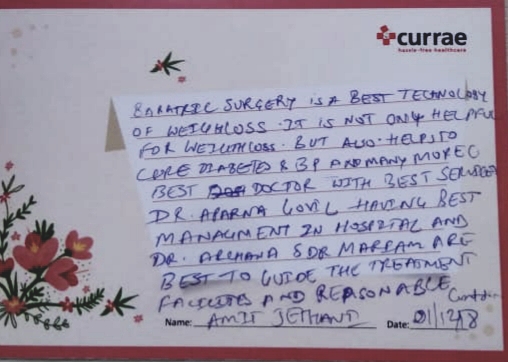 currae
hassle-free healthcare
BARATRIC SURGERY IS A BEST TECHNOLOGY
OF WEIGHLOSS. IT IS NOT ONLY HELPFUL
FOR WEIGHLOSS. BUT ALSO HELPS TO
CURE DIABETES & BP AND MANY MORE
BEST DOCTOR WITH BEST SERVICES
DR. APARNA GOVIL HAVING BEST
MANAGMENT IN HOSPITAL AND
DR. ARCHANA & DR MARIAM ARE
BEST TO GUIDE THE TREATMENT
FACILITES AND REASONABLE
Name: AMIT JETHANI Date: 01/12/18